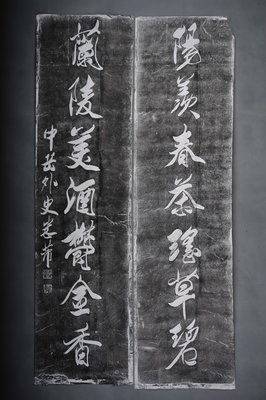 陽羨春茶瑤草碧
蘭陵美酒鬱金香
中岳外史米芾